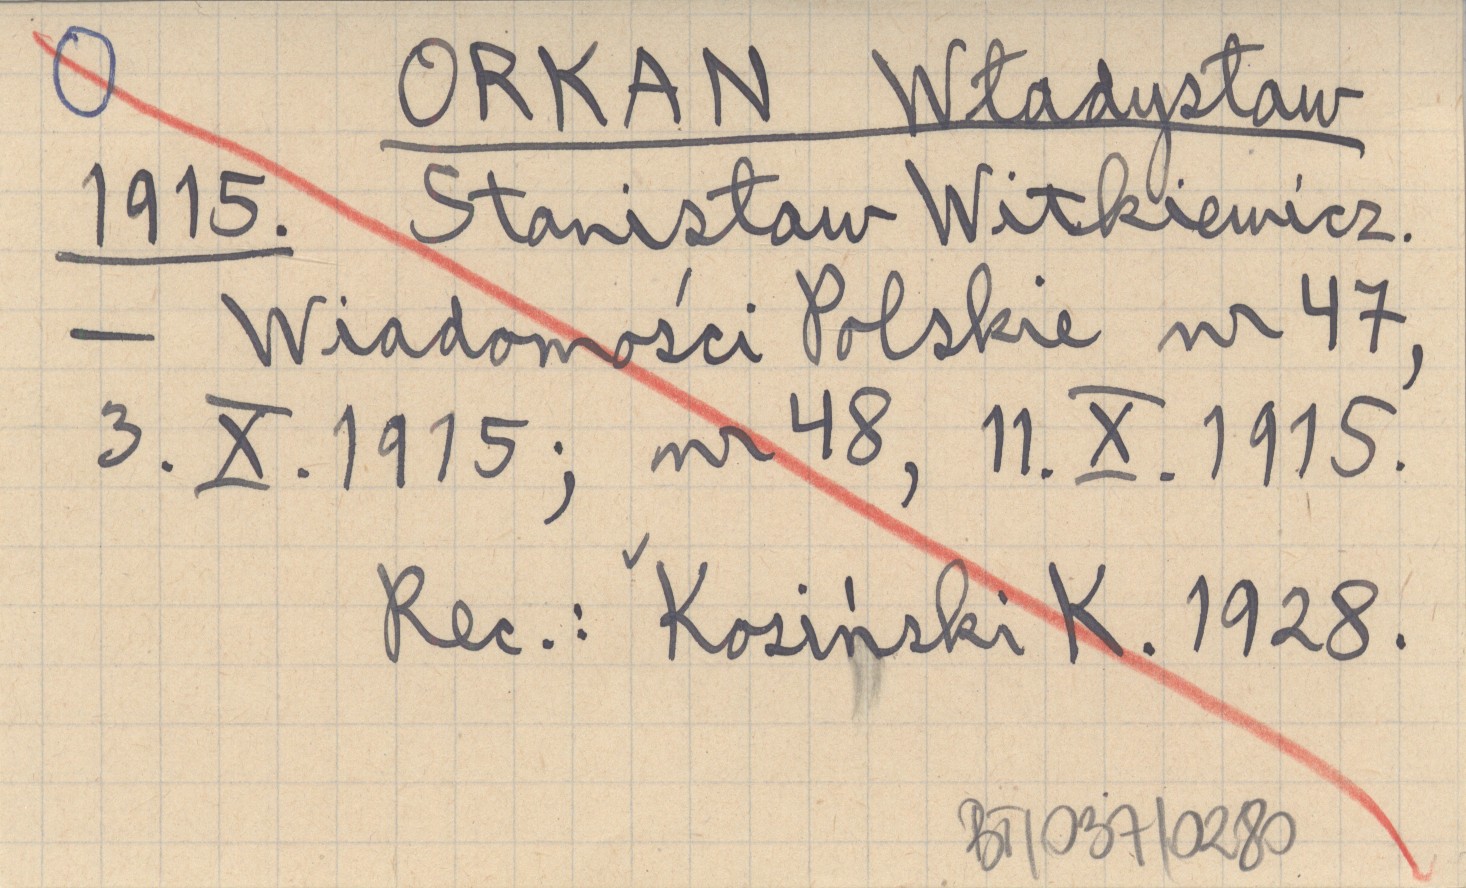 ORKAN Władysław
1915. Stanisław Witkiewicz.
— Wiadomości Polskie nr 47,
3. X. 1915; nr 48, 11. X. 1915.
Rec.: Kosiński K. 1928.
BT/037/0280